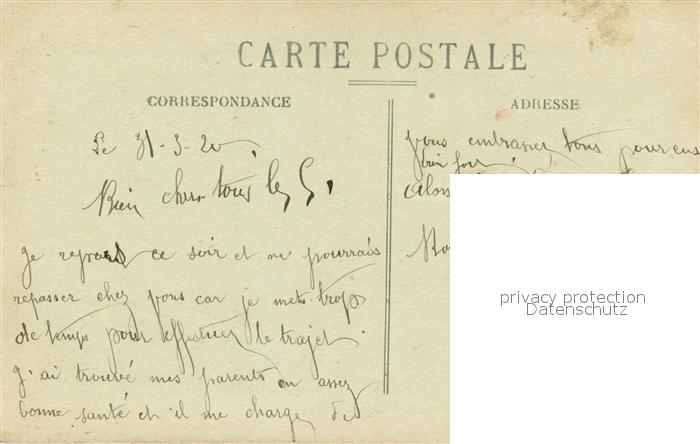 CARTE POSTALE
CORRESPONDANCE
Le 31-3-20
Bien chers tous les G,
Je repars ce soir et ne pourrais
repasser chez vous car je mets trop
de temps pour effectuer le trajet.
J'ai trouvé mes parents en assez
bonne santé et il me charge de
ADRESSE
vous embrasser tous pour eux
bien fort
Alors
privacy protection
Datenschutz